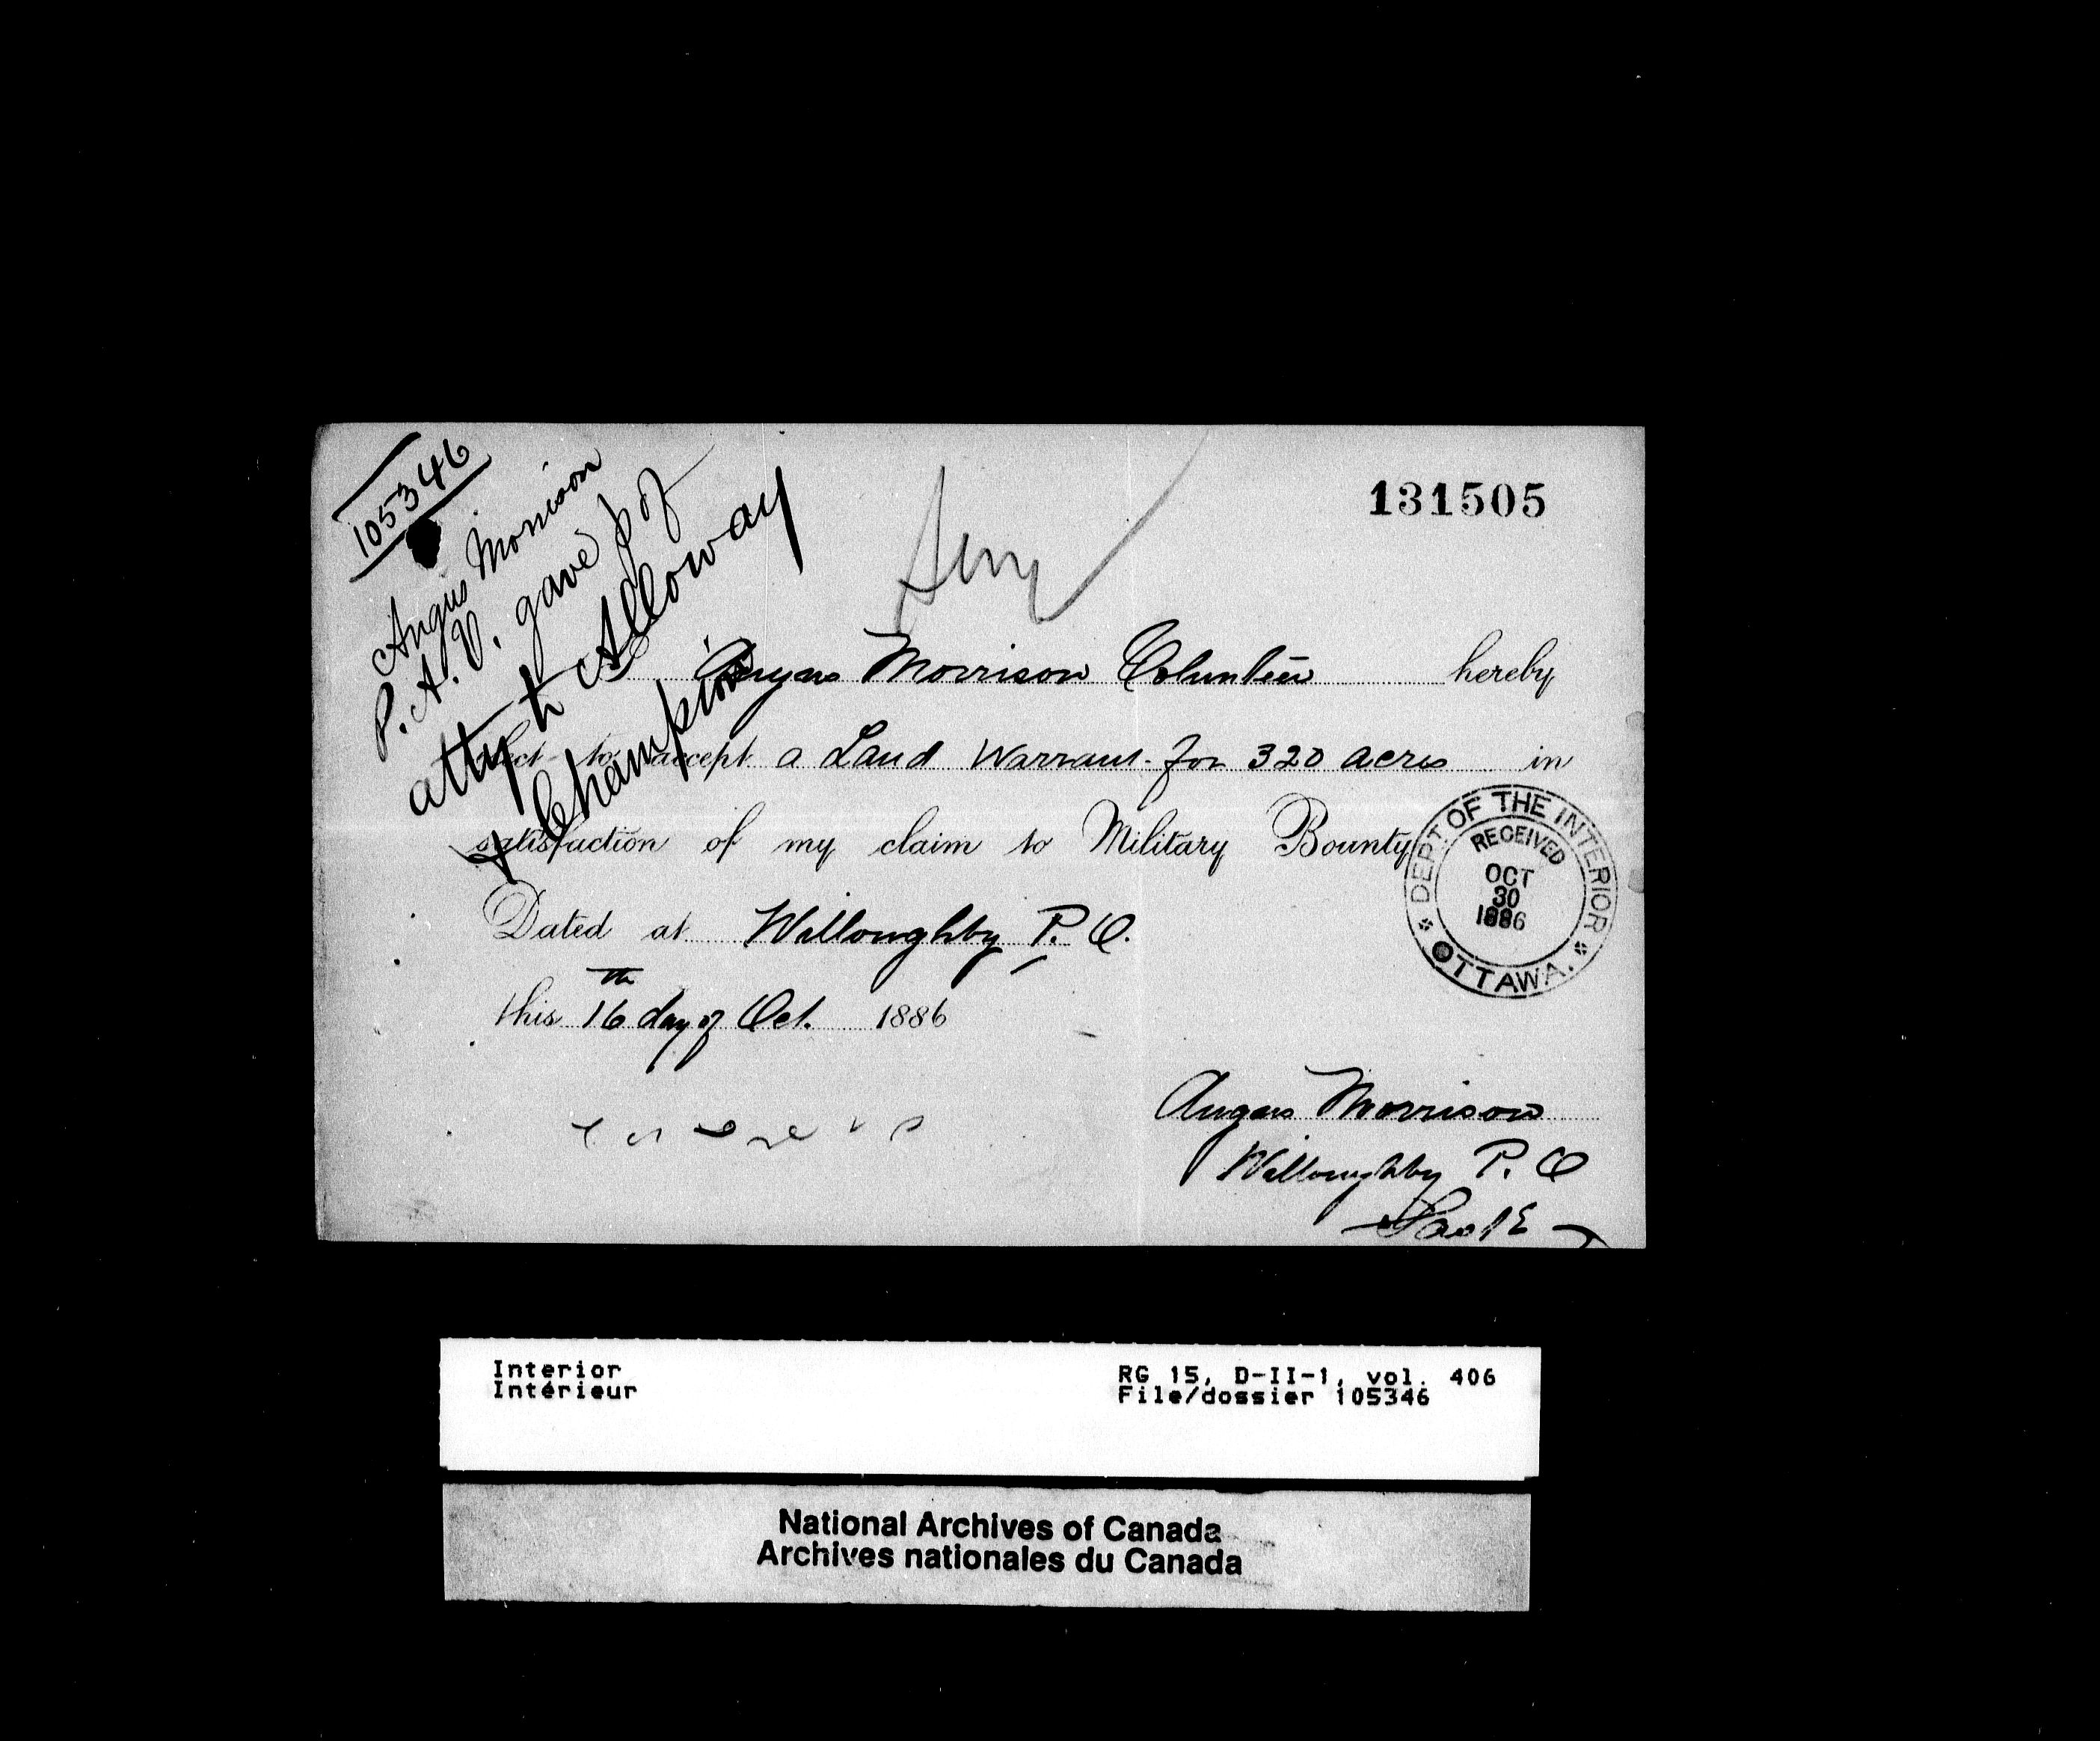 105346
Angus Morrison
P. A. V. gave p of
atty to Alloway
& Champion
131505
I Angus Morrison Volunteer hereby
elect to accept a Land Warrant for 320 acres in
satisfaction of my claim to Military Bounty
DEPT OF THE INTERIOR
RECEIVED
OCT
30
1886
OTTAWA.
Dated at Willoughby P. O.
this 16th day of Oct. 1886
Angus Morrison
Willoughby P. O
Sask
Interior
Intérieur
RG 15, D-II-1, vol. 406
File/dossier 105346
National Archives of Canada
Archives nationales du Canada